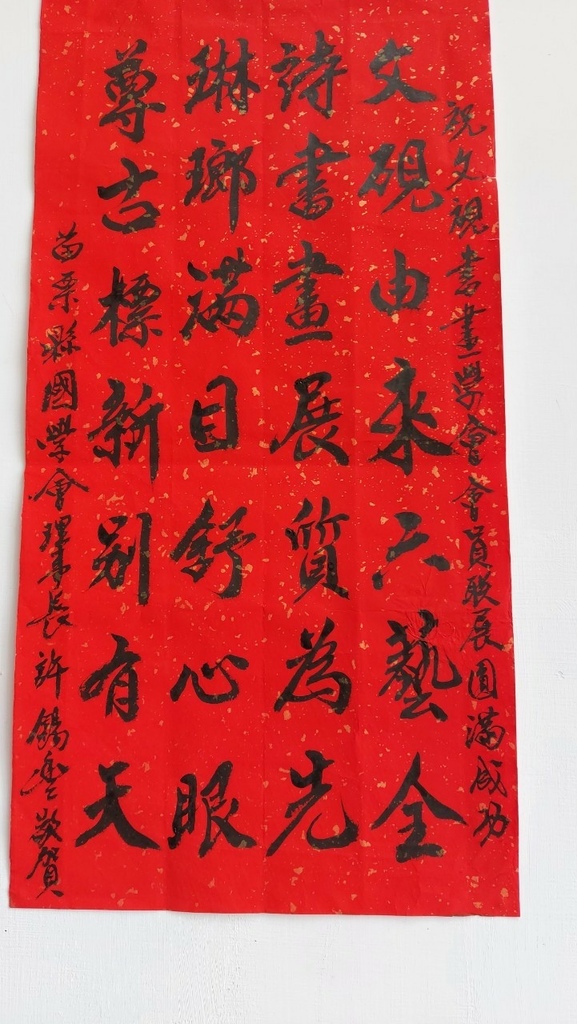 祝文硯書畫學會會員聯展圓滿成功
文硯由來六藝全
詩書畫展質為先
琳瑯滿目舒心眼
尊古標新別有天
苗栗縣國學會理事長許錫奎敬賀